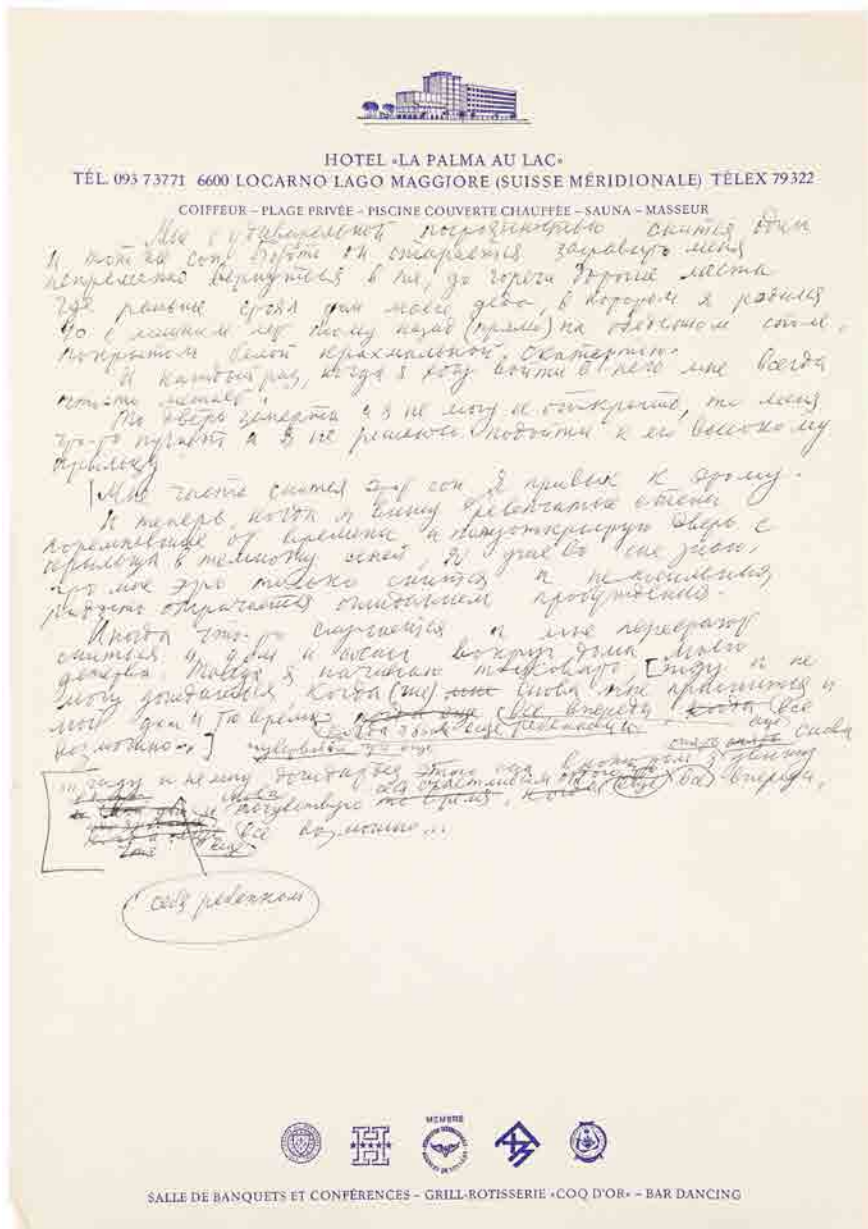 HOTEL «LA PALMA AU LAC»
TÉL. 093 73771 6600 LOCARNO LAGO MAGGIORE (SUISSE MÉRIDIONALE) TÉLEX 79322
COIFFEUR – PLAGE PRIVÉE – PISCINE COUVERTE CHAUFFÉE – SAUNA – MASSEUR
Мне с удивительной снится один
и тот же сон. он старается меня
непременно вернуться в те, до горечи дорогие места
где раньше стоял дом моего деда, в котором я родился
40 с лишним лет тому назад (прямо) на обеденном столе,
покрытом белой крахмальной скатертью.
И каждый раз, когда я хочу войти в него мне всегда
что-то мешает.
То дверь заперта и я не могу её открыть, то меня
что-то пугает и я не решаюсь подойти к его высокому
крыльцу
[Мне часто снится этот сон я привык к этому.
И теперь, когда я вижу бревенчатые стены
потемневшие от времени и полуоткрытую дверь с
крыльца в темноту сеней, я уже во сне знаю,
что мне это только снится и
радость омрачается ожиданием пробуждения.
Иногда что-то случается и мне перестает
сниться и дом и сосны вокруг дома моего
детства. Тогда я начинаю тосковать [жду и не
могу дождаться когда (же) мне снова мне приснится и
мой дом и то время когда еще (все впереди, когда (все
возможно...]
жду и не могу дождаться этого сна в котором я увижу снова
почувствую то время, когда (еще) все впереди,
еще все возможно...
себя ребенком
MEMBRE
SALLE DE BANQUETS ET CONFÉRENCES – GRILL-ROTISSERIE «COQ D'OR» – BAR DANCING